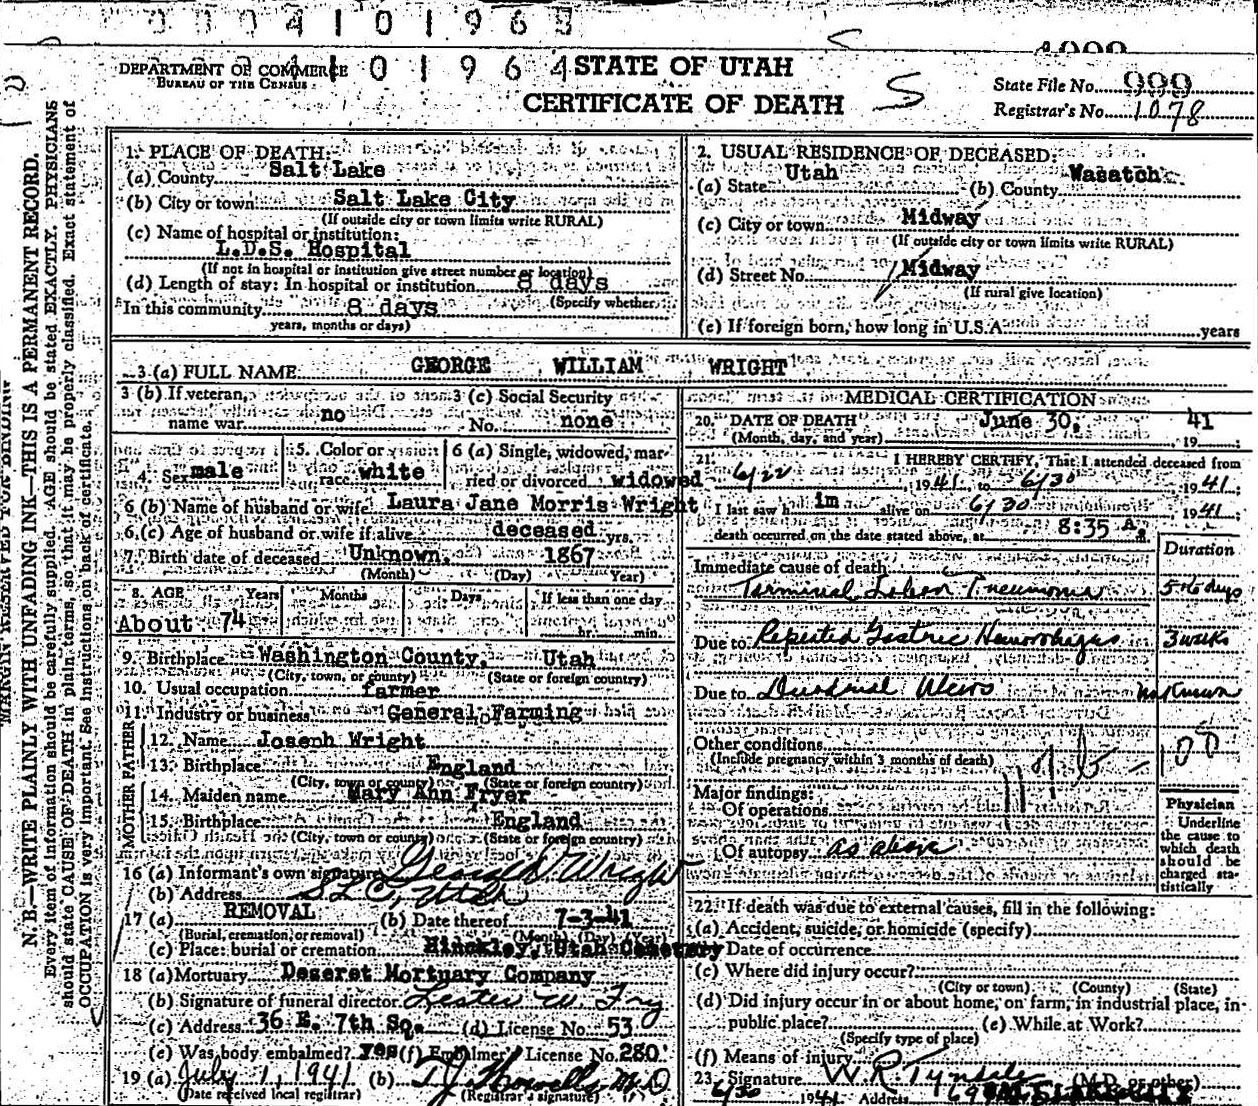 0 0 0 4 1 0 1 9 6 3
DEPARTMENT OF COMMERCE
BUREAU OF THE CENSUS
4 1 0 1 9 6 4
STATE OF UTAH
CERTIFICATE OF DEATH
S
State File No. 999
Registrar's No. 1078
N. B.—WRITE PLAINLY WITH UNFADING INK—THIS IS A PERMANENT RECORD.
Every item of information should be carefully supplied. AGE should be stated EXACTLY. PHYSICIANS
should state CAUSE OF DEATH in plain terms, so that it may be properly classified. Exact statement of
OCCUPATION is very important. See instructions on back of certificate.
1. PLACE OF DEATH:
(a) County Salt Lake
(b) City or town Salt Lake City
(If outside city or town limits write RURAL)
(c) Name of hospital or institution:
L.D.S. Hospital
(If not in hospital or institution give street number or location)
(d) Length of stay: In hospital or institution 8 days
(Specify whether
In this community 8 days
years, months or days)
2. USUAL RESIDENCE OF DECEASED:
(a) State Utah (b) County Wasatch
(c) City or town Midway
(If outside city or town limits write RURAL)
(d) Street No. Midway
(If rural give location)
(e) If foreign born, how long in U.S.A. years
3 (a) FULL NAME GEORGE WILLIAM WRIGHT
3 (b) If veteran, name war no
3 (c) Social Security No. none
4. Sex male
5. Color or race white
6 (a) Single, widowed, married or divorced widowed
6 (b) Name of husband or wife Laura Jane Morris Wright
6 (c) Age of husband or wife if alive deceased yrs.
7. Birth date of deceased Unknown 1867
(Month) (Day) Year)
8. AGE Years Months Days If less than one day
About 74 hr. min.
9. Birthplace Washington County, Utah
(City, town, or county) (State or foreign country)
10. Usual occupation farmer
11. Industry or business General Farming
FATHER
12. Name Joseph Wright
13. Birthplace England
(City, town or county) (State or foreign country)
MOTHER
14. Maiden name Mary Ann Fryer
15. Birthplace England
(City, town or county) (State or foreign country)
16 (a) Informant's own signature George D Wright
(b) Address S L C, Utah
17 (a) REMOVAL (b) Date thereof 7-3-41
(Burial, cremation, or removal) (Month) (Day) (Year)
(c) Place: burial or cremation Hinckley, Utah Cemetery
18 (a) Mortuary Deseret Mortuary Company
(b) Signature of funeral director Lester W. Fry
(c) Address 36 E. 7th So. (d) License No. 53
(e) Was body embalmed? yes (f) Embalmer's License No. 280
19 (a) July 1, 1941 (b) T J Howells, M D
(Date received local registrar) (Registrar's signature)
MEDICAL CERTIFICATION
20. DATE OF DEATH June 30, 19 41
(Month, day, and year)
21. I HEREBY CERTIFY, That I attended deceased from
6/22, 1941, to 6/30 1941;
I last saw him alive on 6/30 1941;
death occurred on the date stated above, at 8:35 A.
Duration
Immediate cause of death
Terminal Lobar Pneumonia 5 to 6 days
Due to Repeated Gastric Hemorrhages 3 weeks
Due to Duodenal Ulcers unknown
Other conditions
(Include pregnancy within 3 months of death)
Major findings:
Of operations
Of autopsy as above
Physician
Underline
the cause to
which death
should be
charged sta-
tistically
22. If death was due to external causes, fill in the following:
(a) Accident, suicide, or homicide (specify)
Date of occurrence
(c) Where did injury occur?
(City or town) (County) (State)
(d) Did injury occur in or about home, on farm, in industrial place, in
public place? (e) While at Work?
(Specify type of place)
(f) Means of injury
23. Signature W R Tyndale (M.D. or other)
6/30 1941 Address